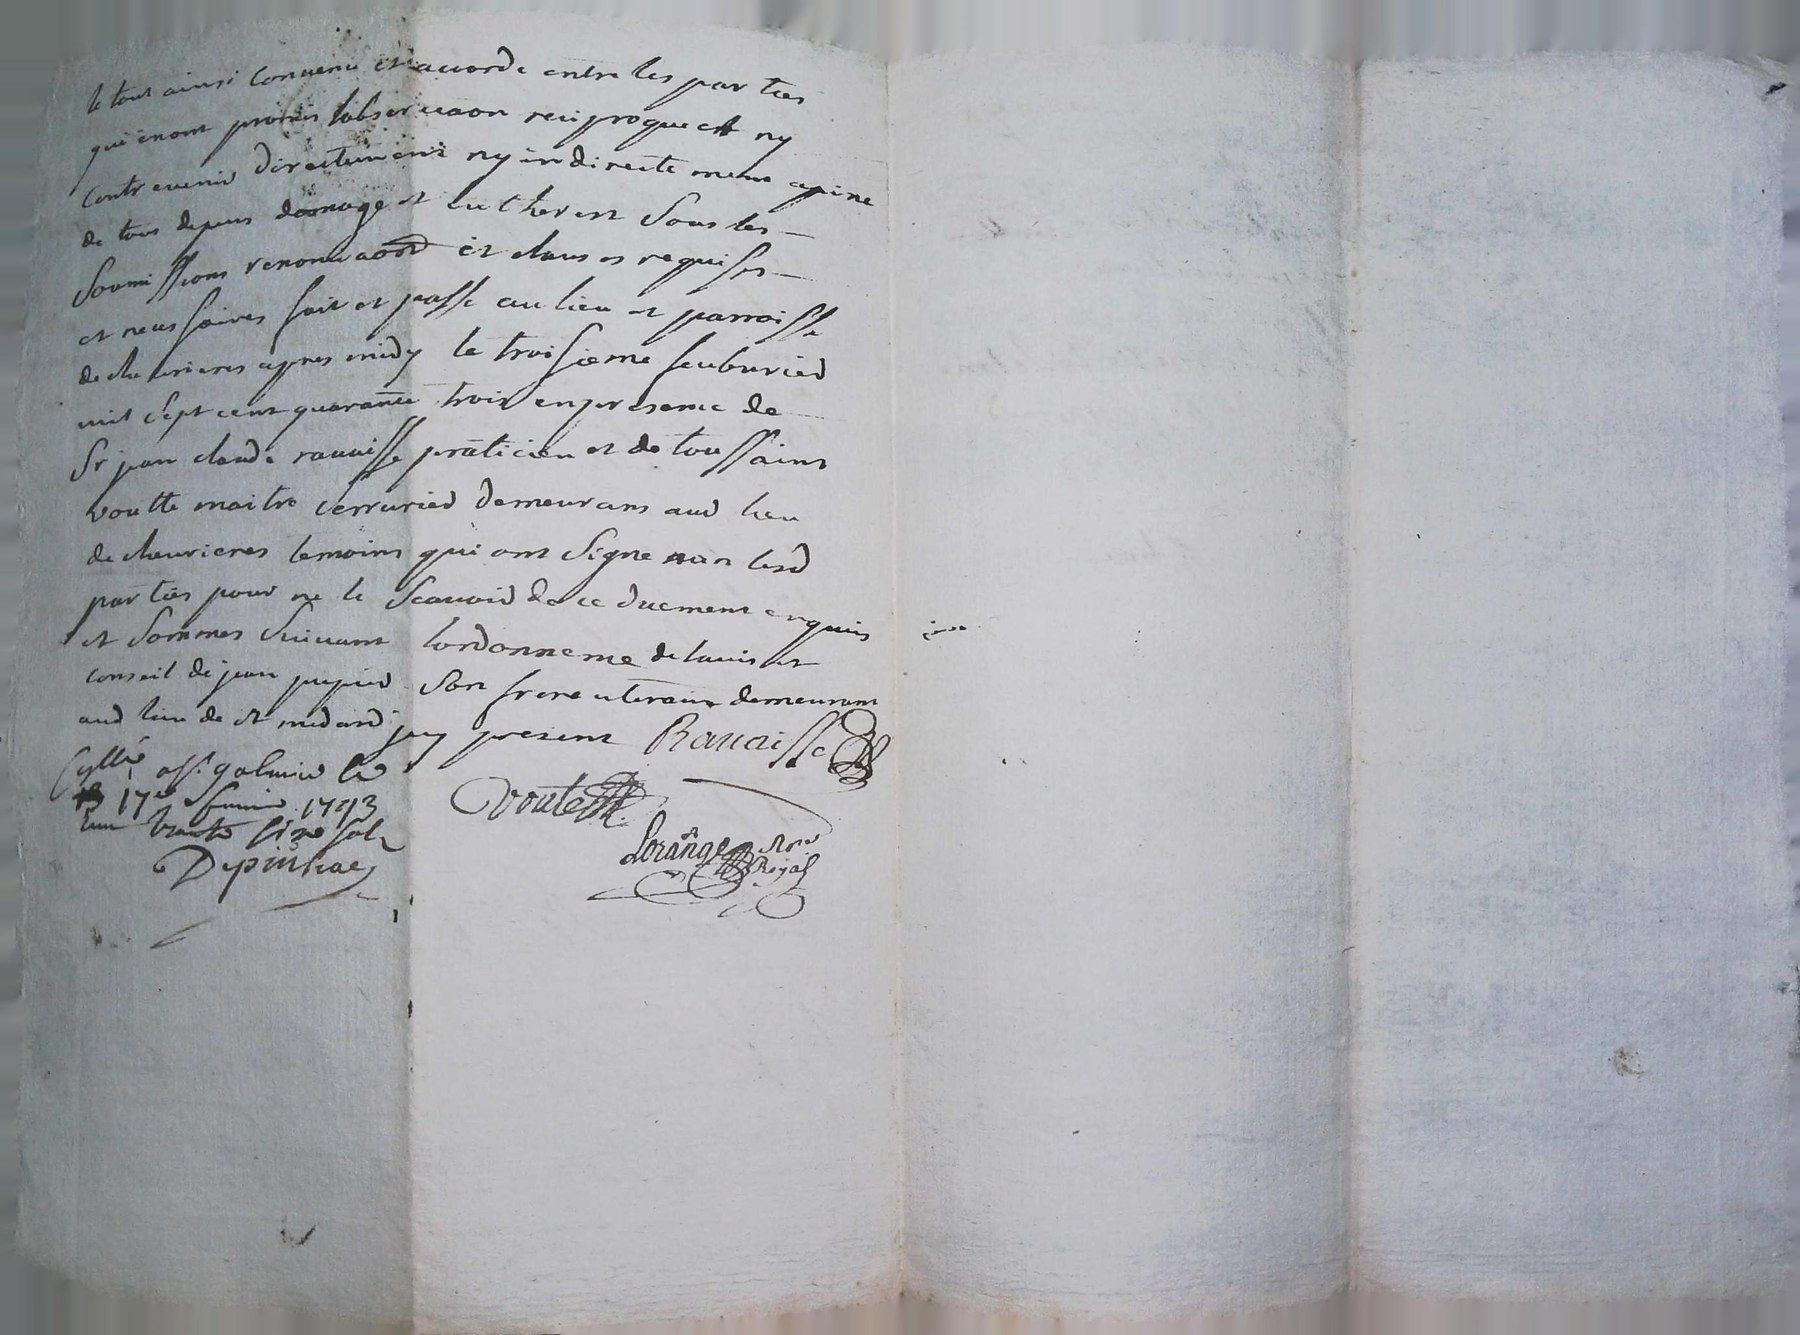 le tout ainsi convenu et accorde entre les parties
qui enont promis lobservaon reciproque et ny
contrevenir directement ny indirectement apeine
de tous depens domage et interest sous les
soumissions renonciaons et clauses requises
et necessaires fait et passe au lieu et parroisse
de chevrieres apres midy le troisieme feubvrier
mil sept cent quarante trois en presence de
Sr jean claude ravaisse praticien et de toussaint
voutte maitre serrurier demeurans aud lieu
de chevrieres temoins qui ont signe non lesd
parties pour ne le scavoir de ce duement enquis
et sommes suivant lordonnence de lavis et
conseil de jean pupier son frere uterain demeurant
aud lieu de st medard jcy present Ravaisse
Voute
Lorange Nore Royal
Collé a st galmier le
17e fevrier 1743
Depinhac